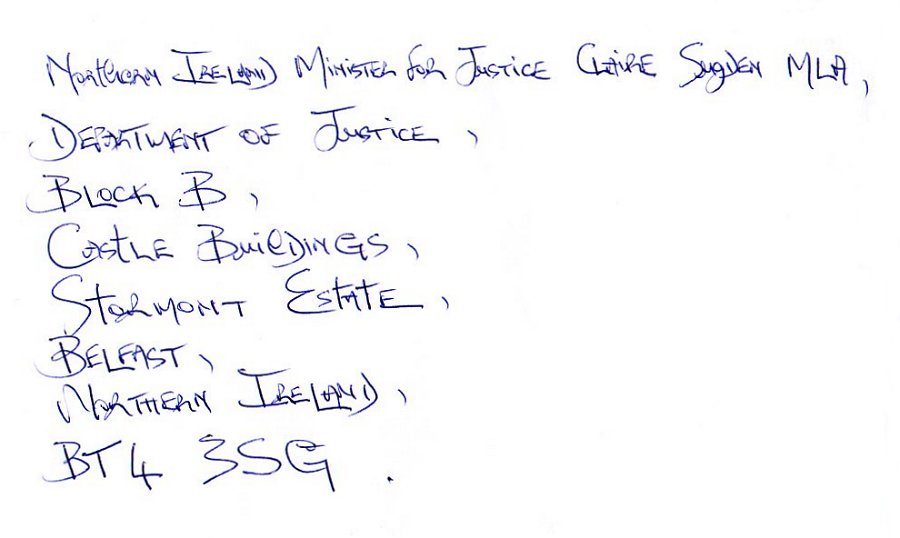 Northern Ireland Minister for Justice Claire Sugden MLA,
Department of Justice,
Block B,
Castle Buildings,
Stormont Estate,
Belfast,
Northern Ireland,
BT4 3SG.